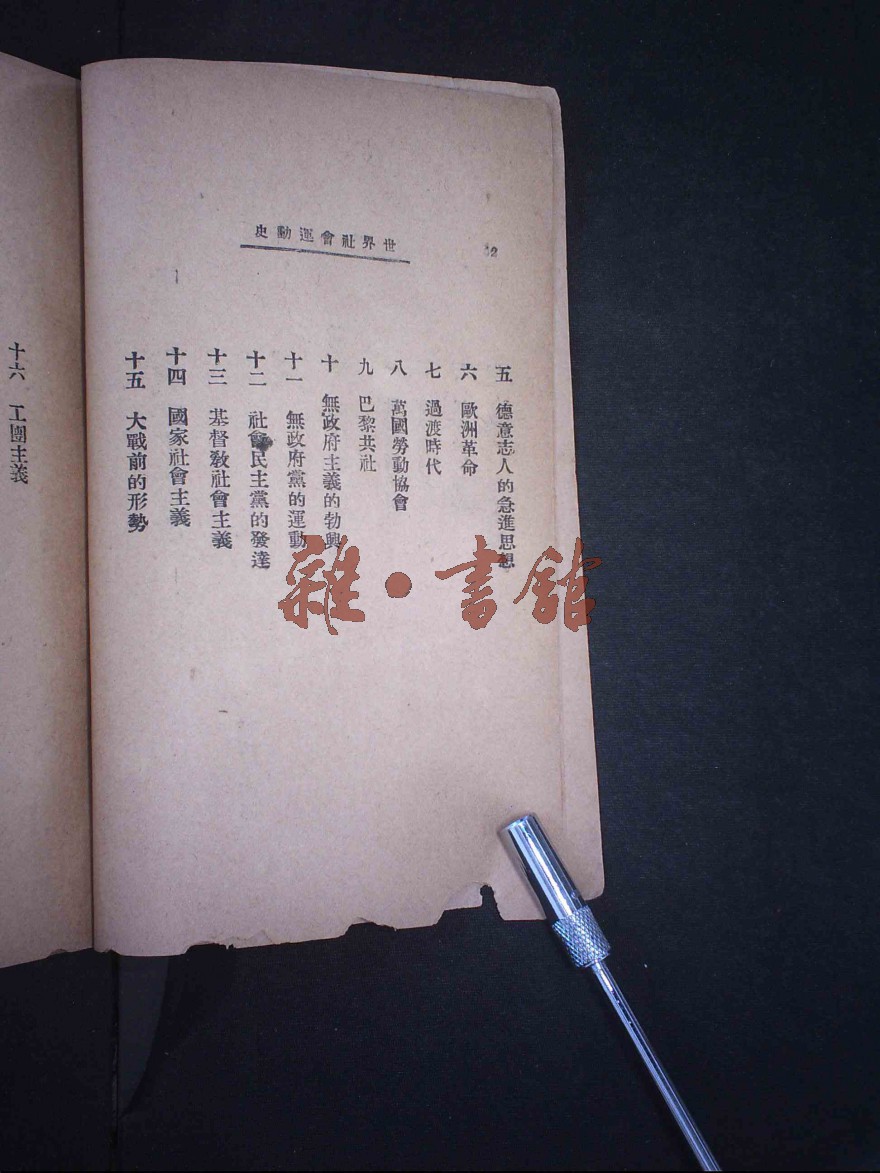 世界社會運動史
五 德意志人的急進思想
六 歐洲革命
七 過渡時代
八 萬國勞動協會
九 巴黎共社
十 無政府主義的勃興
十一 無政府黨的運動
十二 社會民主黨的發達
十三 基督教社會主義
十四 國家社會主義
十五 大戰前的形勢
十六 工團主義
雜·書館